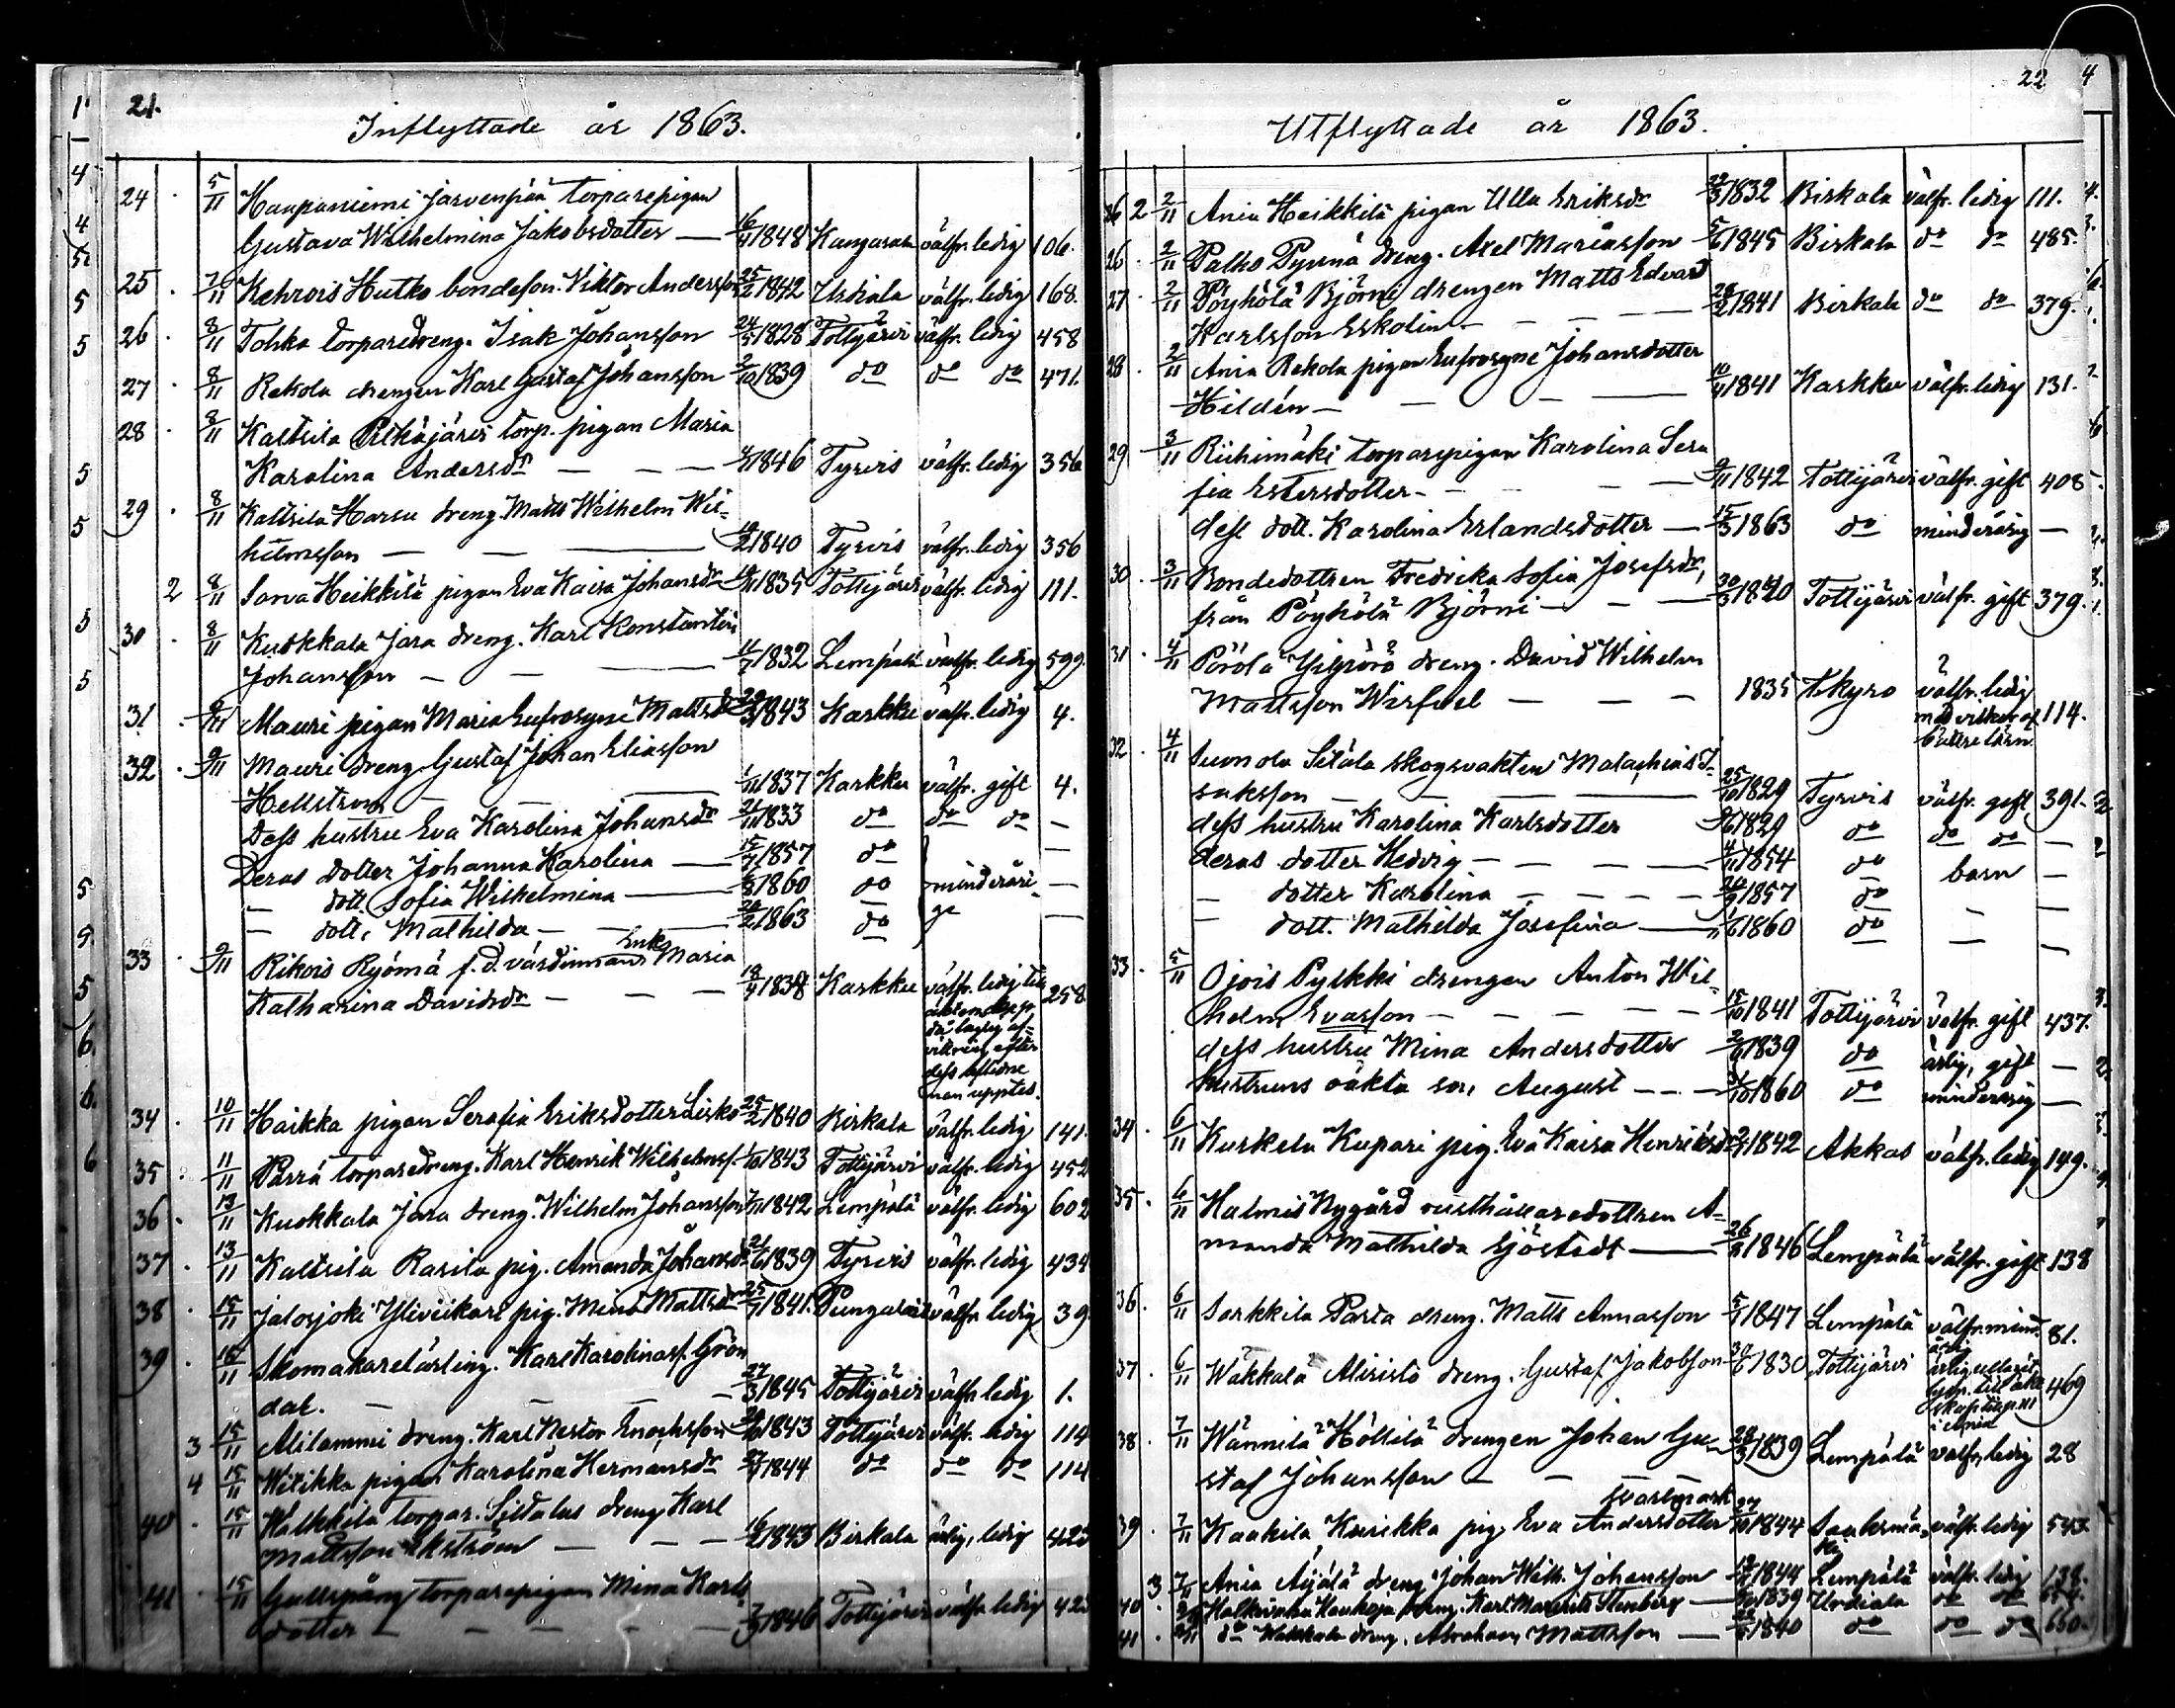 21.
Inflyttade år 1863.
24 . 5/11 Haapaniemi Järvenpää torparepigan
Gustava Wilhelmina Jakobsdotter — 16/4 1848 Kangasala välfr. ledig 106.
25 . 7/11 Kehrois Hutko bondeson. Viktor Andersson 25/2 1842 Urdiala välfr. ledig 168.
26 . 8/11 Tohka torparedreng. Isak Johansson 24/5 1828 Tottijärvi välfr. ledig 458
27 . 8/11 Rekola drengen Karl Gustaf Johansson 2/10 1839 do do do 471.
28 . 8/11 Kaltsila Pitkäjärvi torp. pigan Maria
Karolina Andersdr — — — 1846 Tyrvis välfr. ledig 356
29 . 8/11 Kaltsila Harsu dreng. Matts Wilhelm Wil-
helmsson — — — 1840 Tyrvis välfr. ledig 356
2 8/11 Sarva Heikkilä pigan Eva Kaisa Johansdr 1835 Tottijärvi välfr. ledig 111.
30 . 8/11 Kuokkala Jara dreng. Karl Konstantin
Johansson — — — 1832 Lempälä välfr. ledig 599.
31 . 9/11 Mauri pigan Maria Eufrosyne Mattsdr 1843 Karkku välfr. ledig 4.
32 . 9/11 Mauri dreng Gustaf Johan Eliasson
Hellström — — 1/11 1837 Karkku välfr. gift 4.
Dess hustru Eva Karolina Johansdr 1833 do do do —
Deras dotter Johanna Karolina — 15/7 1857 do —
— dott. Sofia Wilhelmina — 1860 do minderåri- —
— dott. Mathilda — — 1863 do ga —
33 . 9/11 Rikois Ryömä f.d. värdinnans Enk. Maria
Katharina Davidsdr — — — 1838 Karkku välfr. ledig till 258
äktenskap,
då laglig af-
vittring efter
dess aflidne
man upptes.
34 . 10/11 Haikka pigan Serafia Eriksdotter Lisko 25/2 1840 Birkala välfr. ledig 141.
35 . 11/11 Parrå torparedreng. Karl Henrik Wilhelmss. 1843 Tottijärvi välfr. ledig 452
36 . 13/11 Kuokkala Jara dreng. Wilhelm Johansson 1842 Lempälä välfr. ledig 602
37 . 13/11 Kaltsila Rasila pig. Amanda Johansdr 1839 Tyrvis välfr. ledig 434
38 . 15/11 Jalosjoki Yliviikari pig. Mina Mattsdr 25/7 1841. Pungalait välfr. ledig 39
39 . 15/11 Skomakarelärling. Karl Karolinass. Grön
dal. — — — 27/3 1845 Tottijärvi välfr. ledig 1.
3 15/11 Alilammi dreng. Karl Nestor Enochsson 1843 Tottijärvi välfr. ledig 114
4 15/11 Witikka pigan Karolina Hermansdr 1844 do do do 114
40 . 15/11 Walkkila torpar. Siltalas dreng Karl
Mattsson Ekström — — — 16/2 1843 Birkala ärlig, ledig 423
41 . 15/11 Gullspång torparepigan Mina Karls
dotter — — — — 1846 Tottijärvi välfr. ledig 423
22
Utflyttade år 1863.
2 2/11 Ania Heikkilä pigan Ulla Eriksdr 22/3 1832 Birkala välfr. ledig 111.
26 . 2/11 Palho Pyssnä dreng. Axel Mariasson 5/6 1845 Birkala do do 485.
27 . 2/11 Pöyhölä Björni drengen Matts Edvard
Karlsson Eskolin — — — 28/2 1841 Birkala do do 379.
28 . 2/11 Ania Rekola pigan Eufrosyne Johansdotter
Hildén — — — — 10/4 1841 Karkku välfr. ledig 131.
29 3/11 Riihimäki torparepigan Karolina Sera
fia Estersdotter — — — 1842 Tottijärvi välfr. gift 408.
dess dott. Karolina Erlandsdotter — 15/3 1863 do minderårig —
30. 3/11 Bondedottren Fredrika Sofia Josefsdr,
från Pöyhölä Björni — — — 30/3 1840 Tottijärvi välfr. gift 379.
31 . 4/11 Pörölä Ylipörö dreng. David Wilhelm
Mattsson Wirfvel — — — 1835 Ikyro välfr. ledig
med vilkor af 114.
bättre lärd.
32 . 4/11 Suonola Setälä skogsvakten Malachias I-
saksson — — — 25/10 1829 Tyrvis välfr. gift 391.
dess hustru Karolina Karlsdotter 1829 do do do —
deras dotter Hedvig — — — 1854 do barn —
— dotter Karolina — — — 1857 do — —
— dott. Mathilda Josefina — 1860 do — —
33. 5/11 Ojois Pylkki drengen Anton Wil-
helm Evasson — — — 15/10 1841 Tottijärvi välfr. gift 437.
dess hustru Mina Andersdotter 1839 do ärlig, gift —
hustruns oäkta son August — — 31/10 1860 do minderårig —
34 . 6/11 Kurkela Kupari pig. Eva Kaisa Henriksdr 1842 Akkas välfr. ledig 149.
35 . 6/11 Halmis Nygård rusthållaredottren A-
manda Mathilda Sjöstedt — 1846 Lempälä välfr. gift 138
36. 6/11 Sarkkila Parta dreng. Matts Annasson 1847 Lempälä välfr. mind. 81.
årig
37 . 6/11 Wäkkälä Alisistö dreng. Gustaf Jakobsson 1830 Tottijärvi 469
i Ania
38 . 7/11 Wännilä Höllilä drengen Johan Gu-
staf Johansson — — 28/3 1839 Lempälä välfr. ledig 28
39 . 7/11 Kaakila Kurikka pig. Eva Andersdotter Svartmark 27/10 1844 Saaksmä- välfr. ledig 543
ki
3 7/11 Ania Äijälä dreng Johan Wilh. Johansson 1844 Lempälä välfr. ledig 138.
40 . Halkivaha Haukoja dreng. Karl Stenberg — 1839 Urdiala do do
41 . do Wakkala dreng. Abraham Mattsson — 1840 do do do 650.